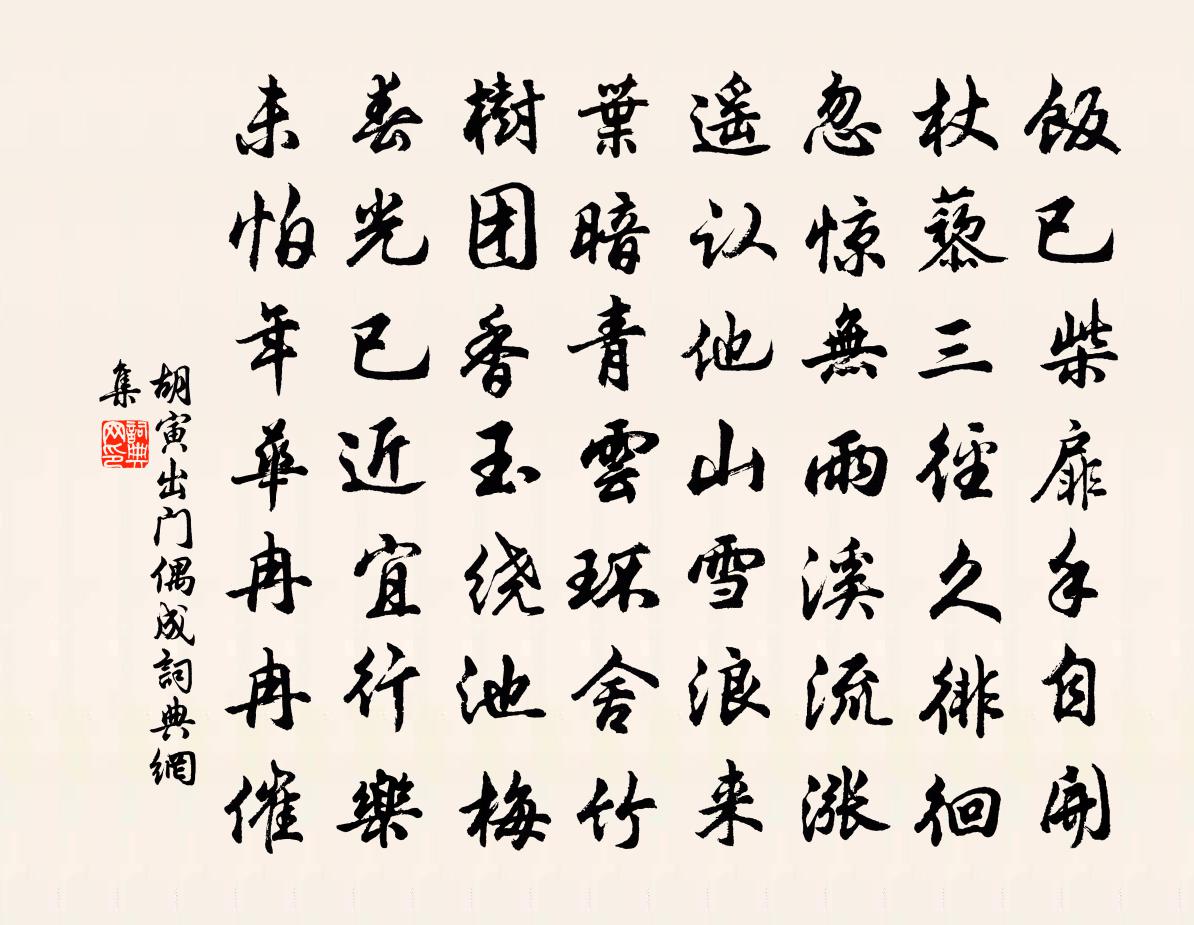 飯已柴扉手自開
杖藜三徑久徘徊
忽惊無雨溪流漲
遥认他山雪浪来
葉暗青雲环舍竹
樹团香玉绕池梅
春光已近宜行樂
未怕年華冉冉催
胡寅出门偶成詞典網
集
詞典
网印